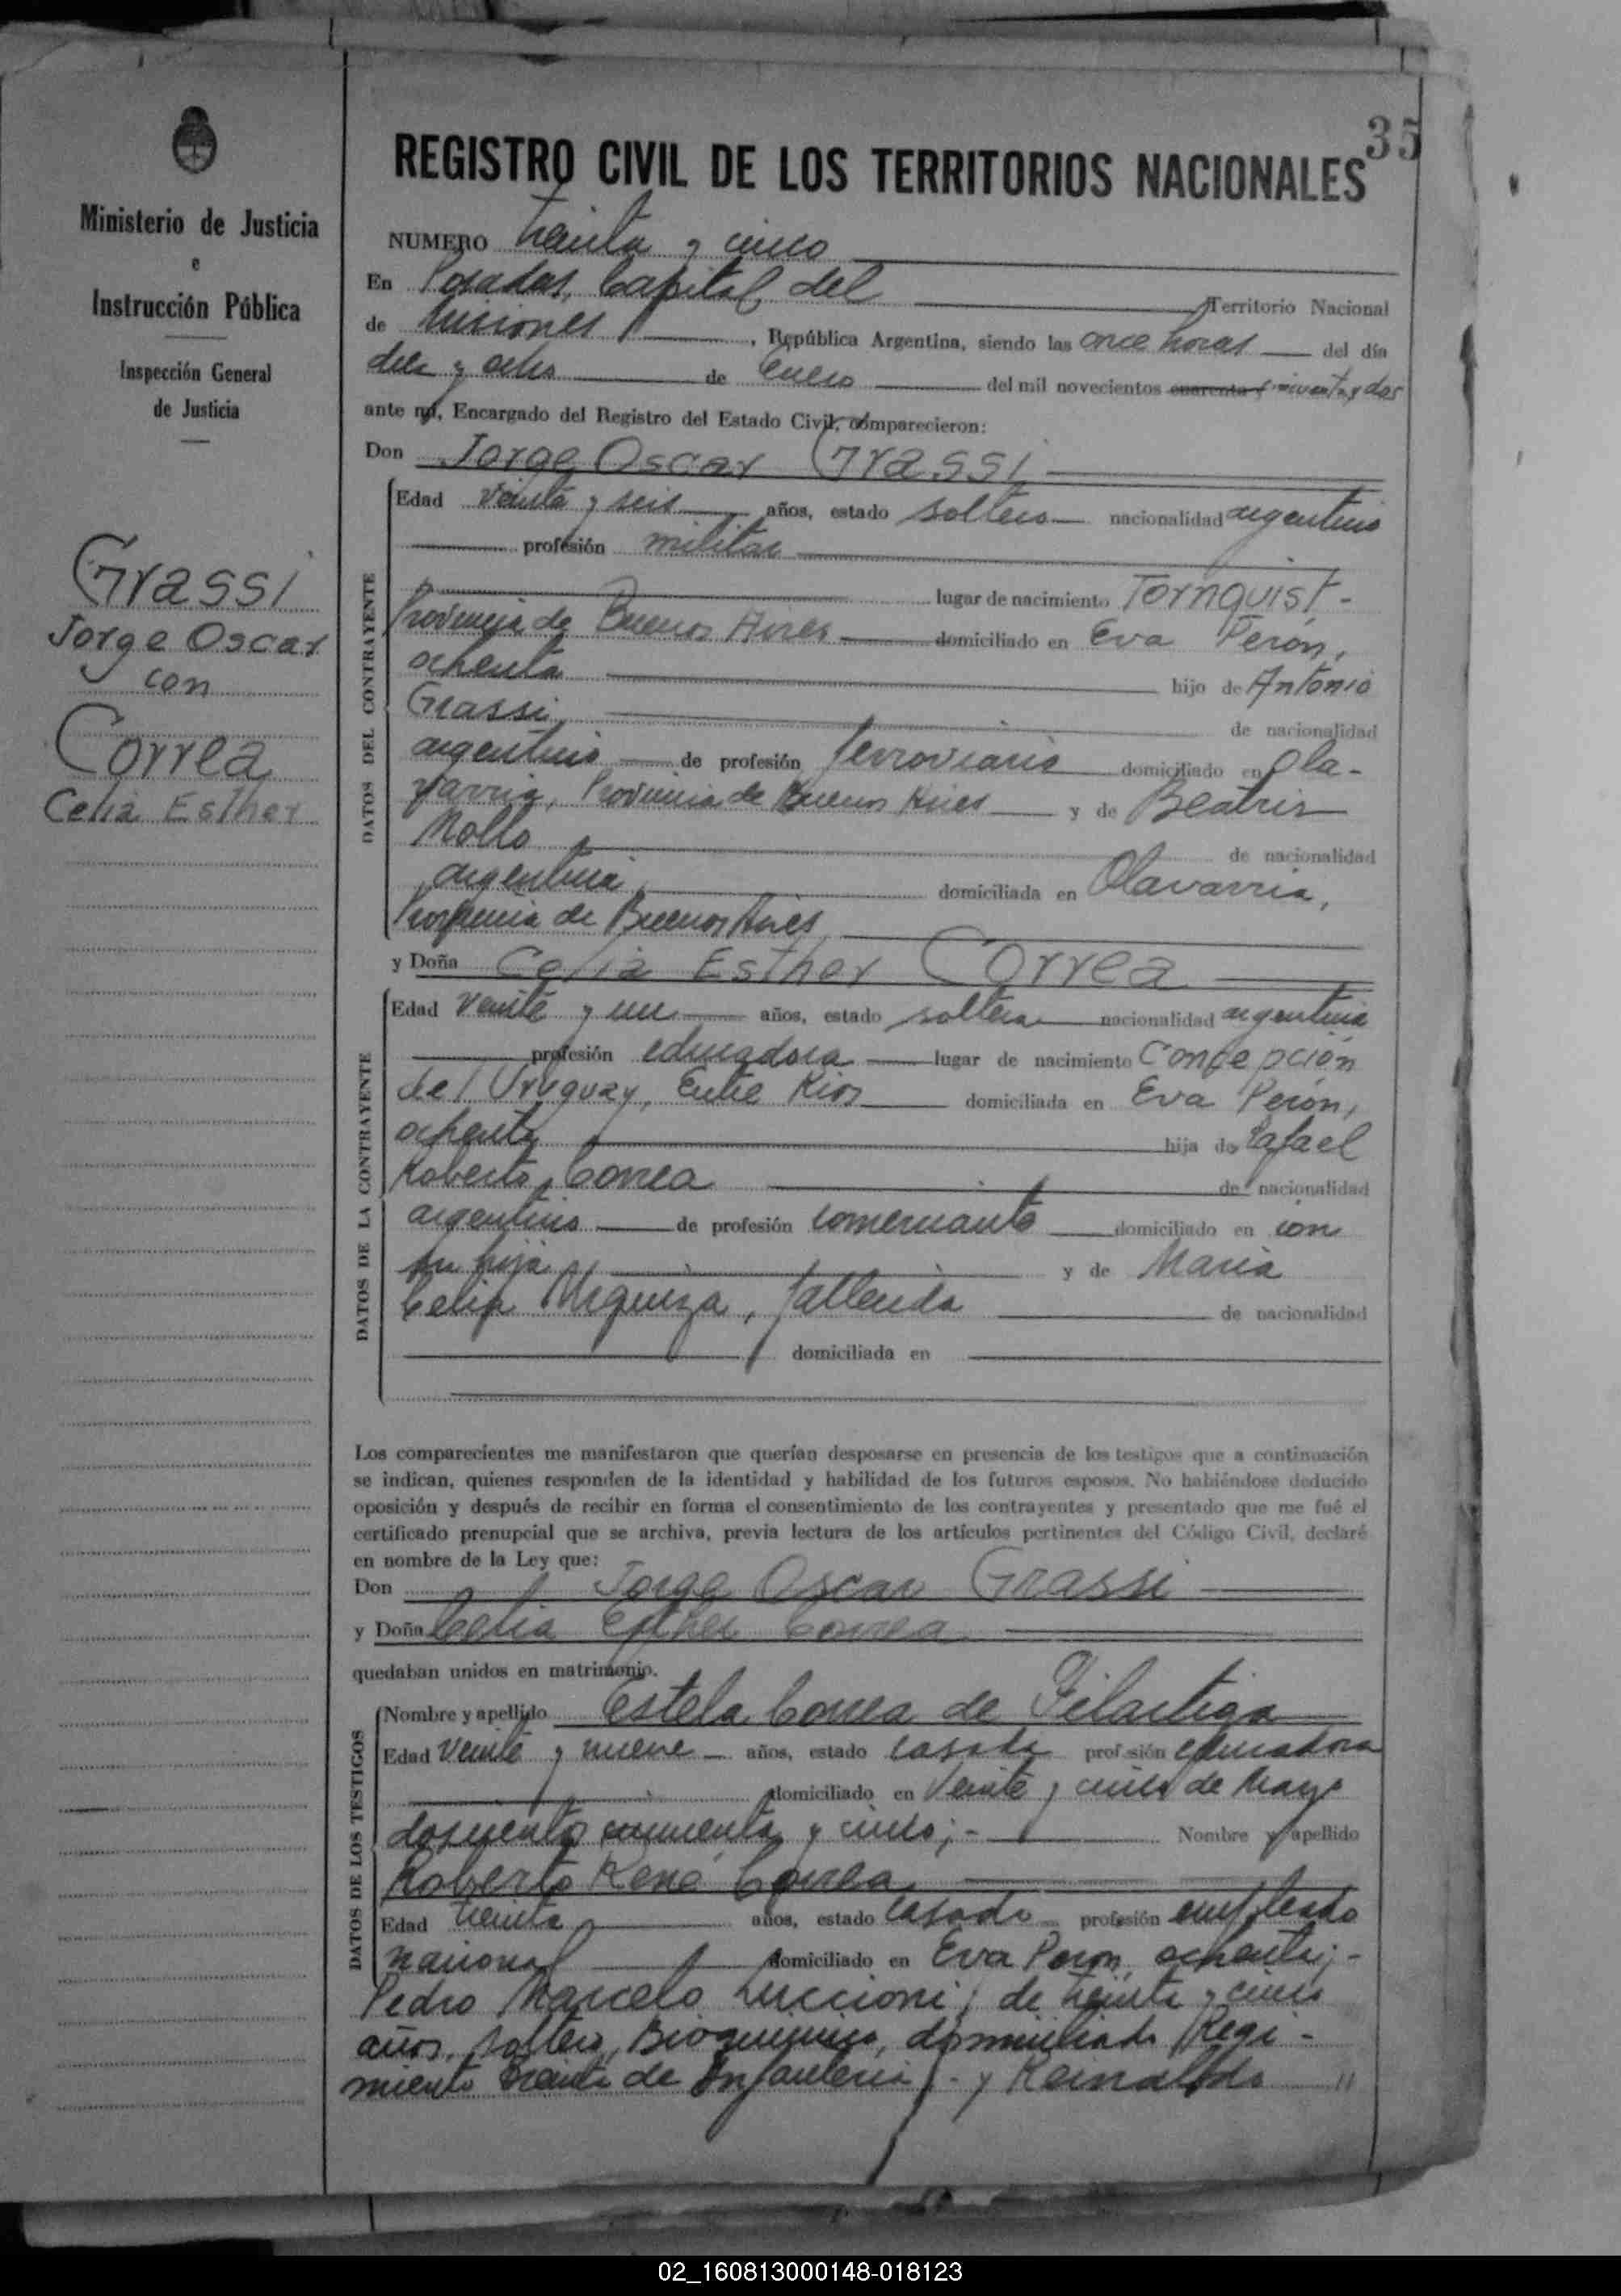 Ministerio de Justicia
e
Instrucción Pública
Inspección General
de Justicia
Grassi
Jorge Oscar
con
Correa
Celia Esther
35
REGISTRO CIVIL DE LOS TERRITORIOS NACIONALES
NUMERO treinta y cinco
En Posadas, Capital del Territorio Nacional
de Misiones, República Argentina, siendo las once horas del día
diez y ocho de Enero del mil novecientos cuarenta y cincuenta y dos
ante mí, Encargado del Registro del Estado Civil, comparecieron:
Don Jorge Oscar Grassi
DATOS DEL CONTRAYENTE
Edad veinte y seis años, estado soltero nacionalidad argentino
profesión militar
lugar de nacimiento Tornquist-
Provincia de Buenos Aires domiciliado en Eva Perón,
ochenta hijo de Antonio
Grassi, de nacionalidad
argentino de profesión ferroviario domiciliado en Ola-
varria, Provincia de Buenos Aires y de Beatris
Mollo de nacionalidad
argentina, domiciliada en Olavarria,
Provincia de Buenos Aires
y Doña Celia Esther Correa
DATOS DE LA CONTRAYENTE
Edad veinte y un años, estado soltera nacionalidad argentina
profesión educadora lugar de nacimiento Concepción
del Uruguay, Entre Rios domiciliada en Eva Perón,
ochenta hija de Rafael
Roberto Correa de nacionalidad
argentino de profesión comerciante domiciliado en con
su hija y de Maria
Celia, fallecida de nacionalidad
domiciliada en
Los comparecientes me manifestaron que querían desposarse en presencia de los testigos que a continuación
se indican, quienes responden de la identidad y habilidad de los futuros esposos. No habiéndose deducido
oposición y después de recibir en forma el consentimiento de los contrayentes y presentado que me fué el
certificado prenupcial que se archiva, previa lectura de los artículos pertinentes del Código Civil, declaré
en nombre de la Ley que:
Don Jorge Oscar Grassi
y Doña Celia Esther Correa
quedaban unidos en matrimonio.
DATOS DE LOS TESTIGOS
Nombre y apellido Estela Correa de Filartiga
Edad veinte y nueve años, estado casada profesión educadora
domiciliado en Veinte y cinco de Mayo
doscientos cincuenta y cinco;- Nombre y apellido
Roberto René Correa
Edad treinta años, estado casado profesión empleado
nacional domiciliado en Eva Peron, ochenta;-
Pedro Marcelo Luccioni; de treinta y cinco
años, soltero, Bioquimico, domiciliado Regi-
miento Treinta de Infanteria;- y Reinaldo "
02_160813000148-018123